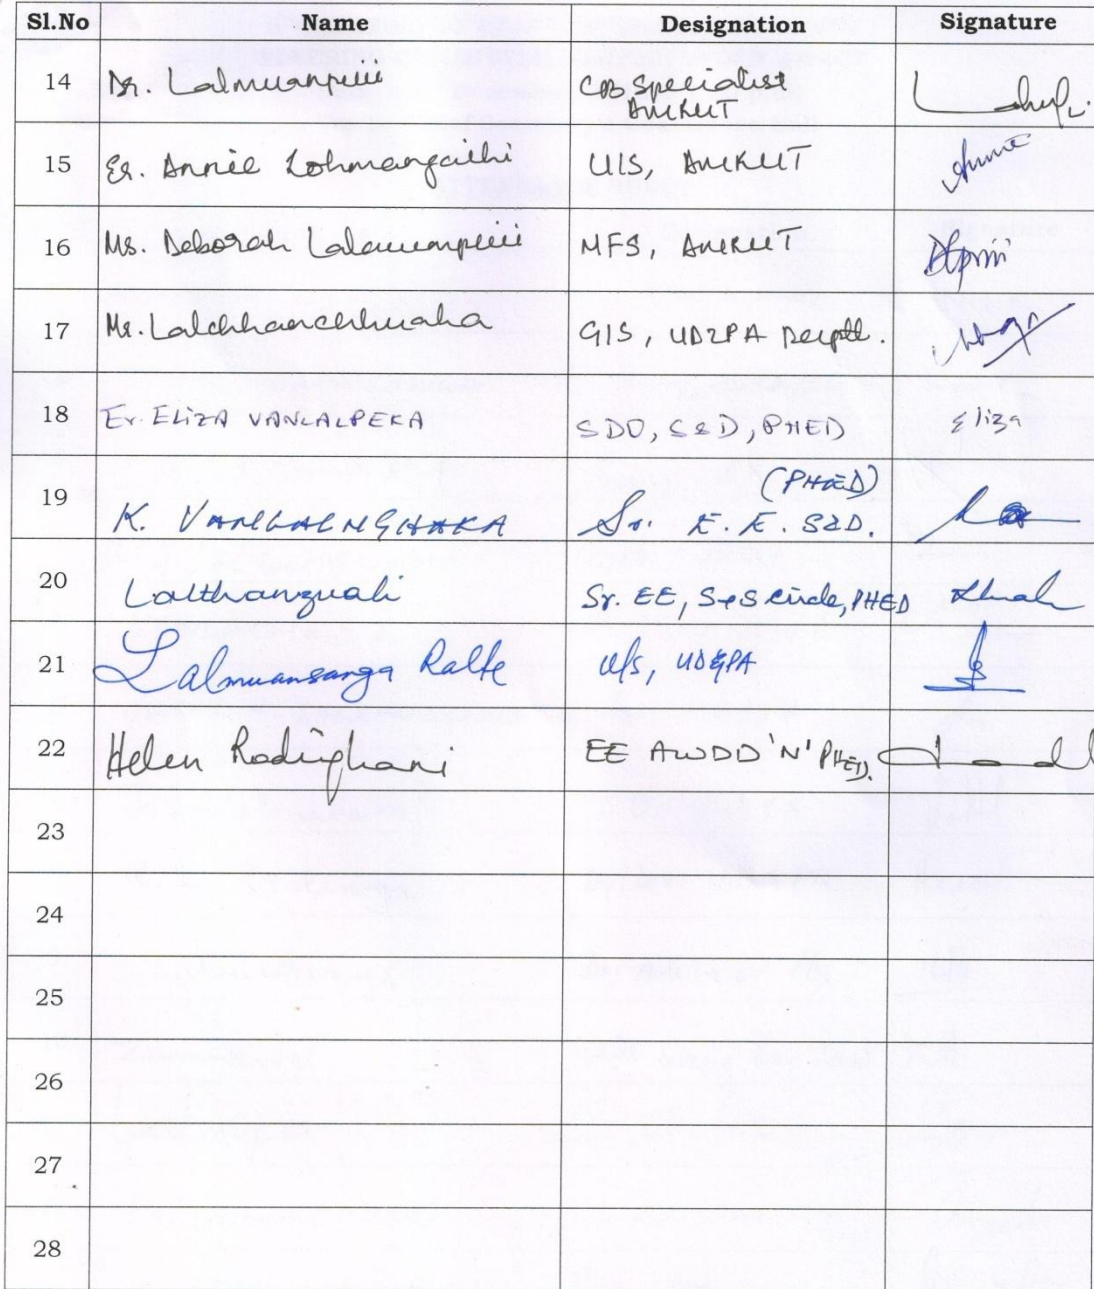 Sl.No Name Designation Signature
14 Dr. Lalmuanpuii CB Specialist
AMRUT
15 Er. Annie Lohmangaihi UIS, AMRUT Annie
16 Ms. Deborah Lalamuanpuii MFS, AMRUT
17 Mr. Lalchhanchhuaha GIS, UD&PA Deptt.
18 Er. ELIZA VANLALPEKA SDO, S&D, PHED Eliza
19 K. VANLALNGHAKA Sr. E.E. S&D. (PHED)
20 Lalthanzuali Sr. EE, S&S Circle, PHED
21 Lalmuansanga Ralte U/S, UD&PA
22 Helen Rodinghani EE AWDD 'N' PHED.
23
24
25
26
27
28